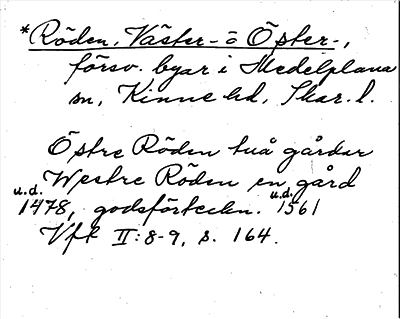 *Röden, Väster- o Öster-,
försv. byar i Medelplana
sn, Kinne hd, Skar. l.
Östre Röden tuå gårdar
Westre Röden en gård
u.d. 1478, godsförteckn. u.d. 1561
Vfk II:8-9, s. 164.